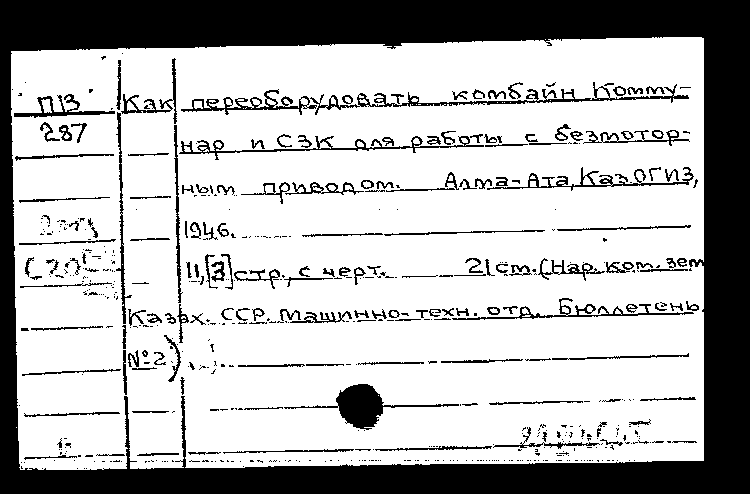 П13 Как переоборудовать комбайн Комму-
287 нар и СЗК для работы с безмотор-
ным приводом. Алма-Ата, Каз.ОГИЗ,
1946.
11,[3] стр., с черт. 21 см. (Нар. ком. зем
Казах. ССР. Машинно-техн. отд. Бюллетень.
№2)